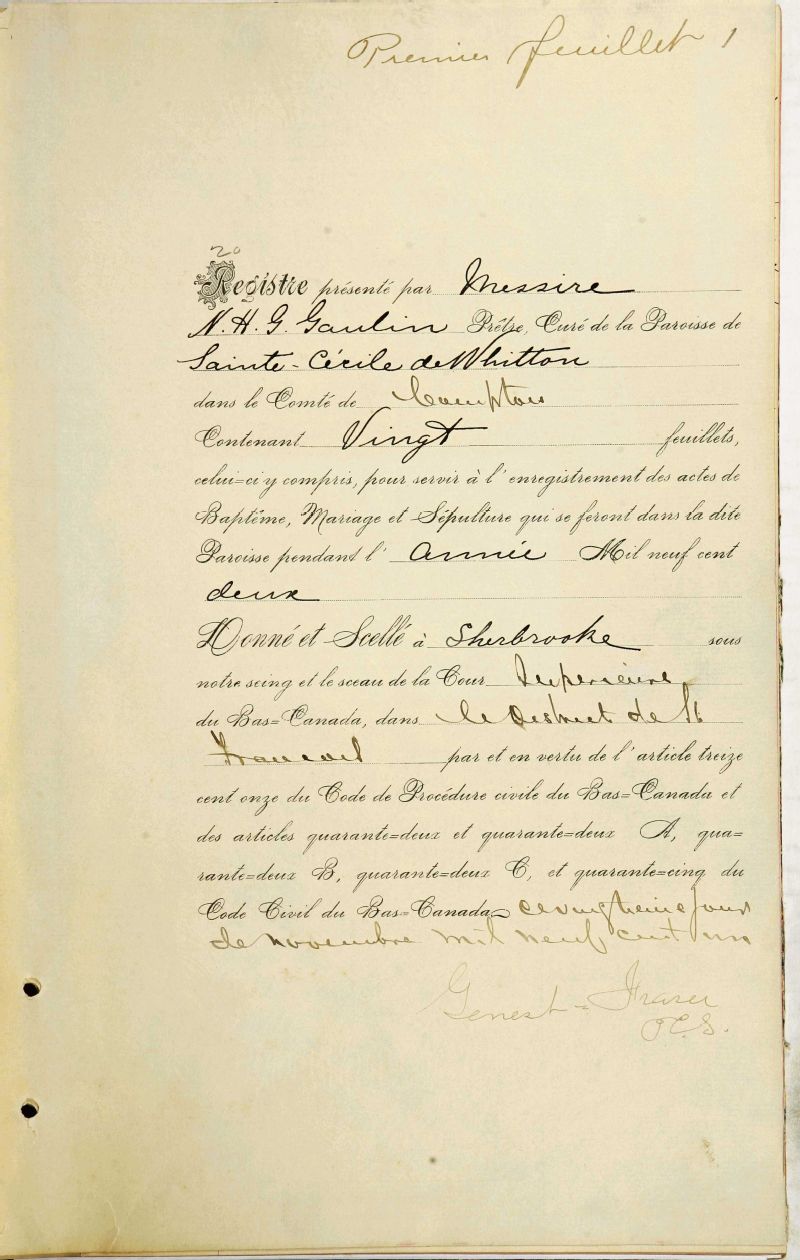 Premier feuillet 1
20
Registre présenté par Messire
N. H. G. Gaulin Prêtre, Curé de la Paroisse de
Sainte-Cécile de Whitton
dans le Comté de Compton
Contenant Vingt feuillets,
celui=ci y compris, pour servir à l'enregistrement des actes de
Baptême, Mariage et Sépulture qui se feront dans la dite
Paroisse pendant l'année Mil neuf cent
deux
Donné et Scellé à Sherbrooke sous
notre seing et le sceau de la Cour Superieure
du Bas=Canada, dans le District de St
Francois par et en vertu de l'article treize
cent onze du Code de Procédure civile du Bas=Canada et
des articles quarante=deux et quarante=deux A, qua=
rante=deux B, quarante=deux C, et quarante=cinq du
Code Civil du Bas=Canada ce vingtieme jour
de novembre mil neuf cent un
Genest - Fraser
P.C.S.